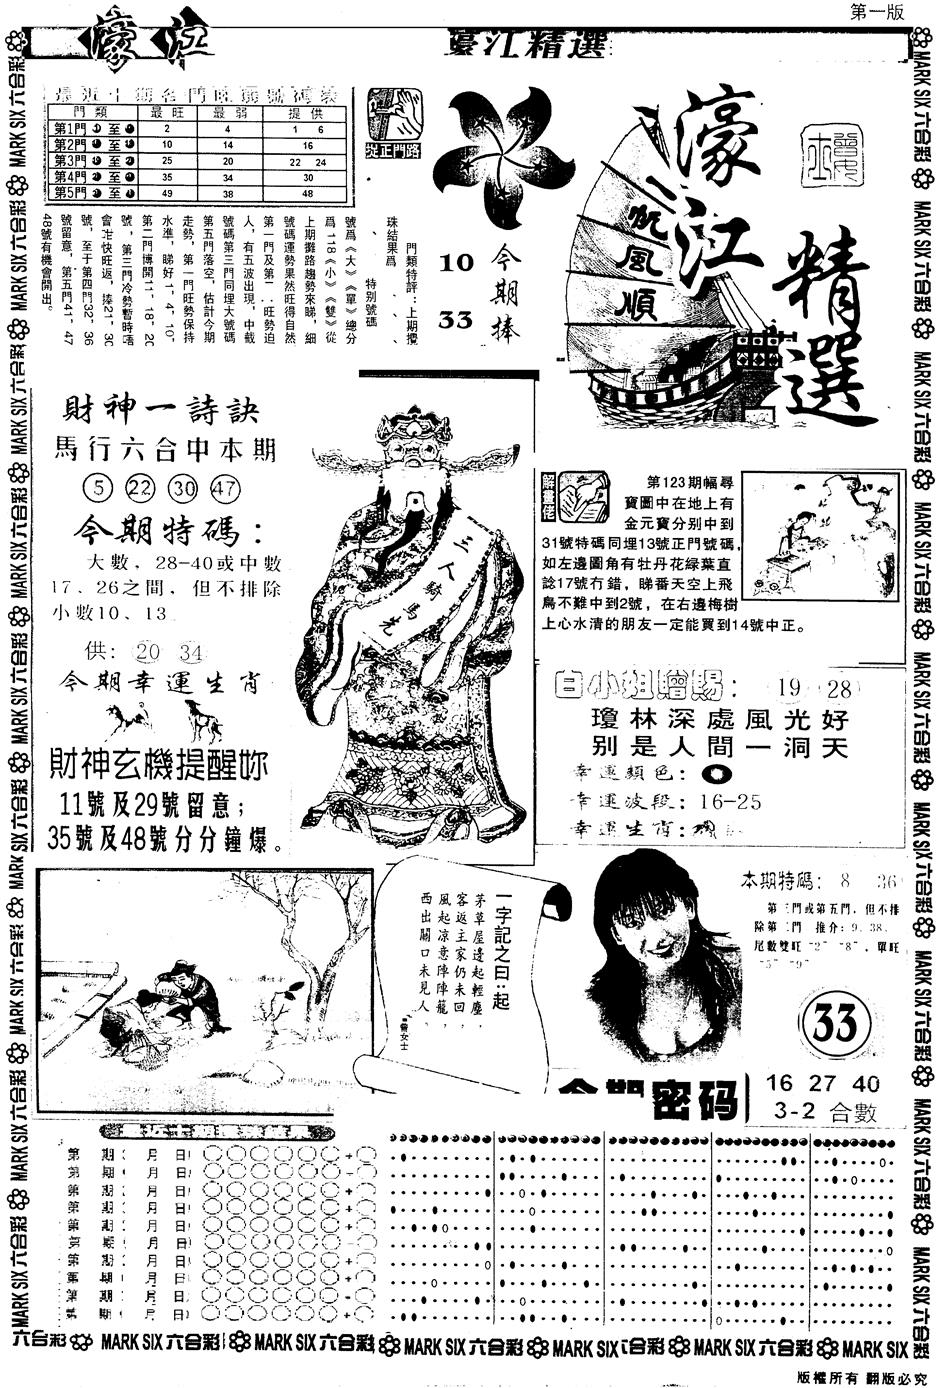 第一版
濠江
濠江精選
門類 最旺 最弱 提供
第1門 至 2 4 1 6
第2門 至 10 14 16
第3門 至 25 20 22 24
第4門 至 35 34 30
第5門 至 49 38 48
從正門路
門類特評：上期攪
珠結果爲、、、
、特别號碼
號爲《大》《單》總分
爲118《小》《雙》從
上期攤路趨勢來睇，細
號碼運勢果然旺得自然
第一門及第二、旺勢迫
人，有五波出現，中截
號碼第三門同埋大號碼
第五門落空，估計今期
走勢，第一門旺勢保持
水準，睇好1、4、10
第二門博開11、18、20
號，第三門冷勢暫時唔
會冚快旺返，揍21、30
號，至于第四門32、36
號留意，第五門41、47
48號有機會開出。
今期捧
10
33
帆風順
濠江
精選
財神一詩訣
馬行六合中本期
5 22 30 47
今期特碼：
大數，28-40或中數
17、26之間，但不排除
小數10、13
供：20 34
今期幸運生肖
財神玄機提醒妳
11號及29號留意；
35號及48號分分鐘爆。
三人騎馬先
解畫佬
第123期幅尋
寶圖中在地上有
金元寶分别中到
31號特碼同埋13號正門號碼，
如左邊圖角有牡丹花綠葉直
諗17號冇錯，睇番天空上飛
鳥不難中到2號，在右邊梅樹
上心水清的朋友一定能買到14號中正。
白小姐贈賜：19 28
瓊林深處風光好
别是人間一洞天
幸運顏色：
幸運波段：16-25
幸運生肖：
一字記之曰：起
茅草屋邊起輕塵，
客返主家仍未回，
風起凉意陣陣籠，
西出關口未見人。
曾女士
本期特碼：8 36
第三門或第五門，但不排
除第二門 推介：9.38.
尾數雙旺"2" "8"，單旺
"5" "9"
33
今期密码
16 27 40
3-2 合數
第 期（ 月 日） +
第 期（ 月 日） +
第 期（ 月 日） +
第 期（ 月 日） +
第 期（ 月 日） +
第 期（ 月 日） +
第 期（ 月 日） +
第 期（ 月 日） +
第 期（ 月 日） +
第 期（ 月 日） +
六合彩 MARK SIX 六合彩 MARK SIX 六合彩 MARK SIX 六合彩 MARK SIX 六合彩 MARK SIX 六合彩 MARK SIX
版權所有 翻版必究